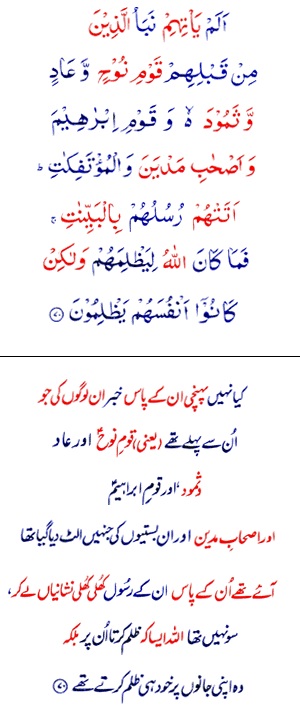 اَلَمْ يَاْتِهِمْ نَبَاُ الَّذِيْنَ
مِنْ قَبْلِهِمْ قَوْمِ نُوْحٍ وَّ عَادٍ
وَّ ثَمُوْدَ ۙ۬ وَ قَوْمِ اِبْرٰهِيْمَ
وَ اَصْحٰبِ مَدْيَنَ وَ الْمُؤْتَفِكٰتِ ؕ
اَتَتْهُمْ رُسُلُهُمْ بِالْبَيِّنٰتِ ۚ
فَمَا كَانَ اللّٰهُ لِيَظْلِمَهُمْ وَ لٰكِنْ
كَانُوْۤا اَنْفُسَهُمْ يَظْلِمُوْنَ ﴿۷۰﴾
کیا نہیں پہنچی ان کے پاس خبر ان لوگوں کی جو
اُن سے پہلے تھے (یعنی) قومِ نوحؑ اور عاد
و ثمود، اور قومِ ابراہیمؑ
اور اصحابِ مدین اور ان بستیوں کی جنہیں الٹ دیا گیا تھا
آئے تھے اُن کے پاس ان کے رسُول کُھلی کُھلی نشانیاں لے کر،
سو نہیں تھا اللہ ایسا کہ ظلم کرتا اُن پر بلکہ
وہ اپنی جانوں پر خود ہی ظلم کرتے تھے ﴿۷۰﴾